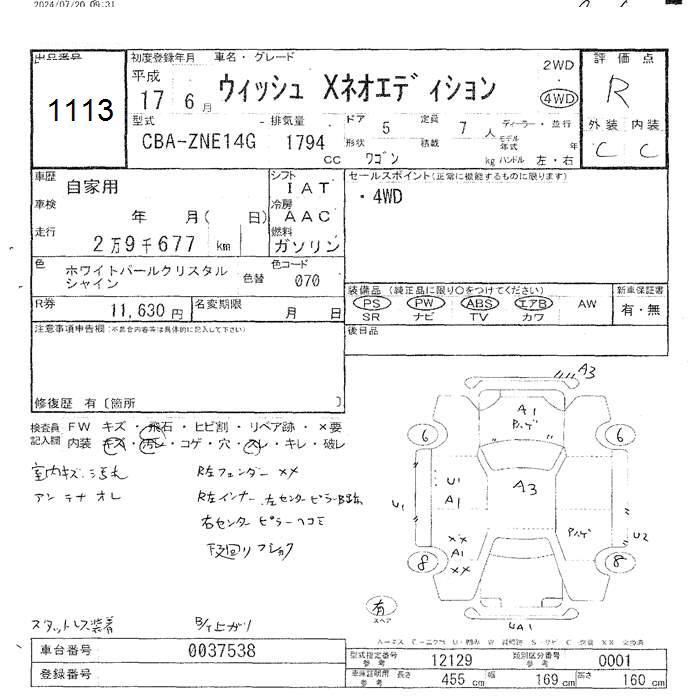 2024/07/20 09:31
出品番号
1113
初度登録年月 車名・グレード
平成
17 6月
ウィッシュ Xネオエディション
2WD
4WD
評価点
R
外装 内装
C C
型式
CBA-ZNE14G
排気量
1794
cc
ドア 5
形状 ワゴン
定員 7 人
積載 kg
ディーラー・並行
モデル年式 年
ハンドル 左・右
車歴 自家用
車検 年 月( 日)
走行 2万9千677 km
シフト IAT
冷房 AAC
燃料 ガソリン
セールスポイント(正常に機能するものに限ります)
・4WD
色 ホワイトパールクリスタル
シャイン
色替
色コード
070
R券 11,630 円
名変期限 月 日
装備品 (純正品に限り○をつけてください)
PS PW ABS エアB AW
SR ナビ TV カワ
新車保証書
有・無
注意事項申告欄(不具合内容等は具体的に記入して下さい)
後日品
修復歴 有〔箇所 〕
検査員記入欄
FW キズ・飛石・ヒビ割・リペア跡・×要
内装 キズ・汚レ・コゲ・穴・スレ・キレ・破レ
室内キズ・汚れ
アンテナオレ
R左フェンダーXX
R左インナー、左センターピラーB跡
右センターピラーヘコミ
下廻りフショク
A3
A1
6 6
A3
U1
A1
U1
XX
A1
XX
U2
8 8
有
スペア
UA1
スタットレス装着
車台番号 0037538
登録番号
型式指定番号
参考
12129
類別区分番号
参考
0001
車庫証明用
参考
長さ 455 cm 幅 169 cm 高さ 160 cm